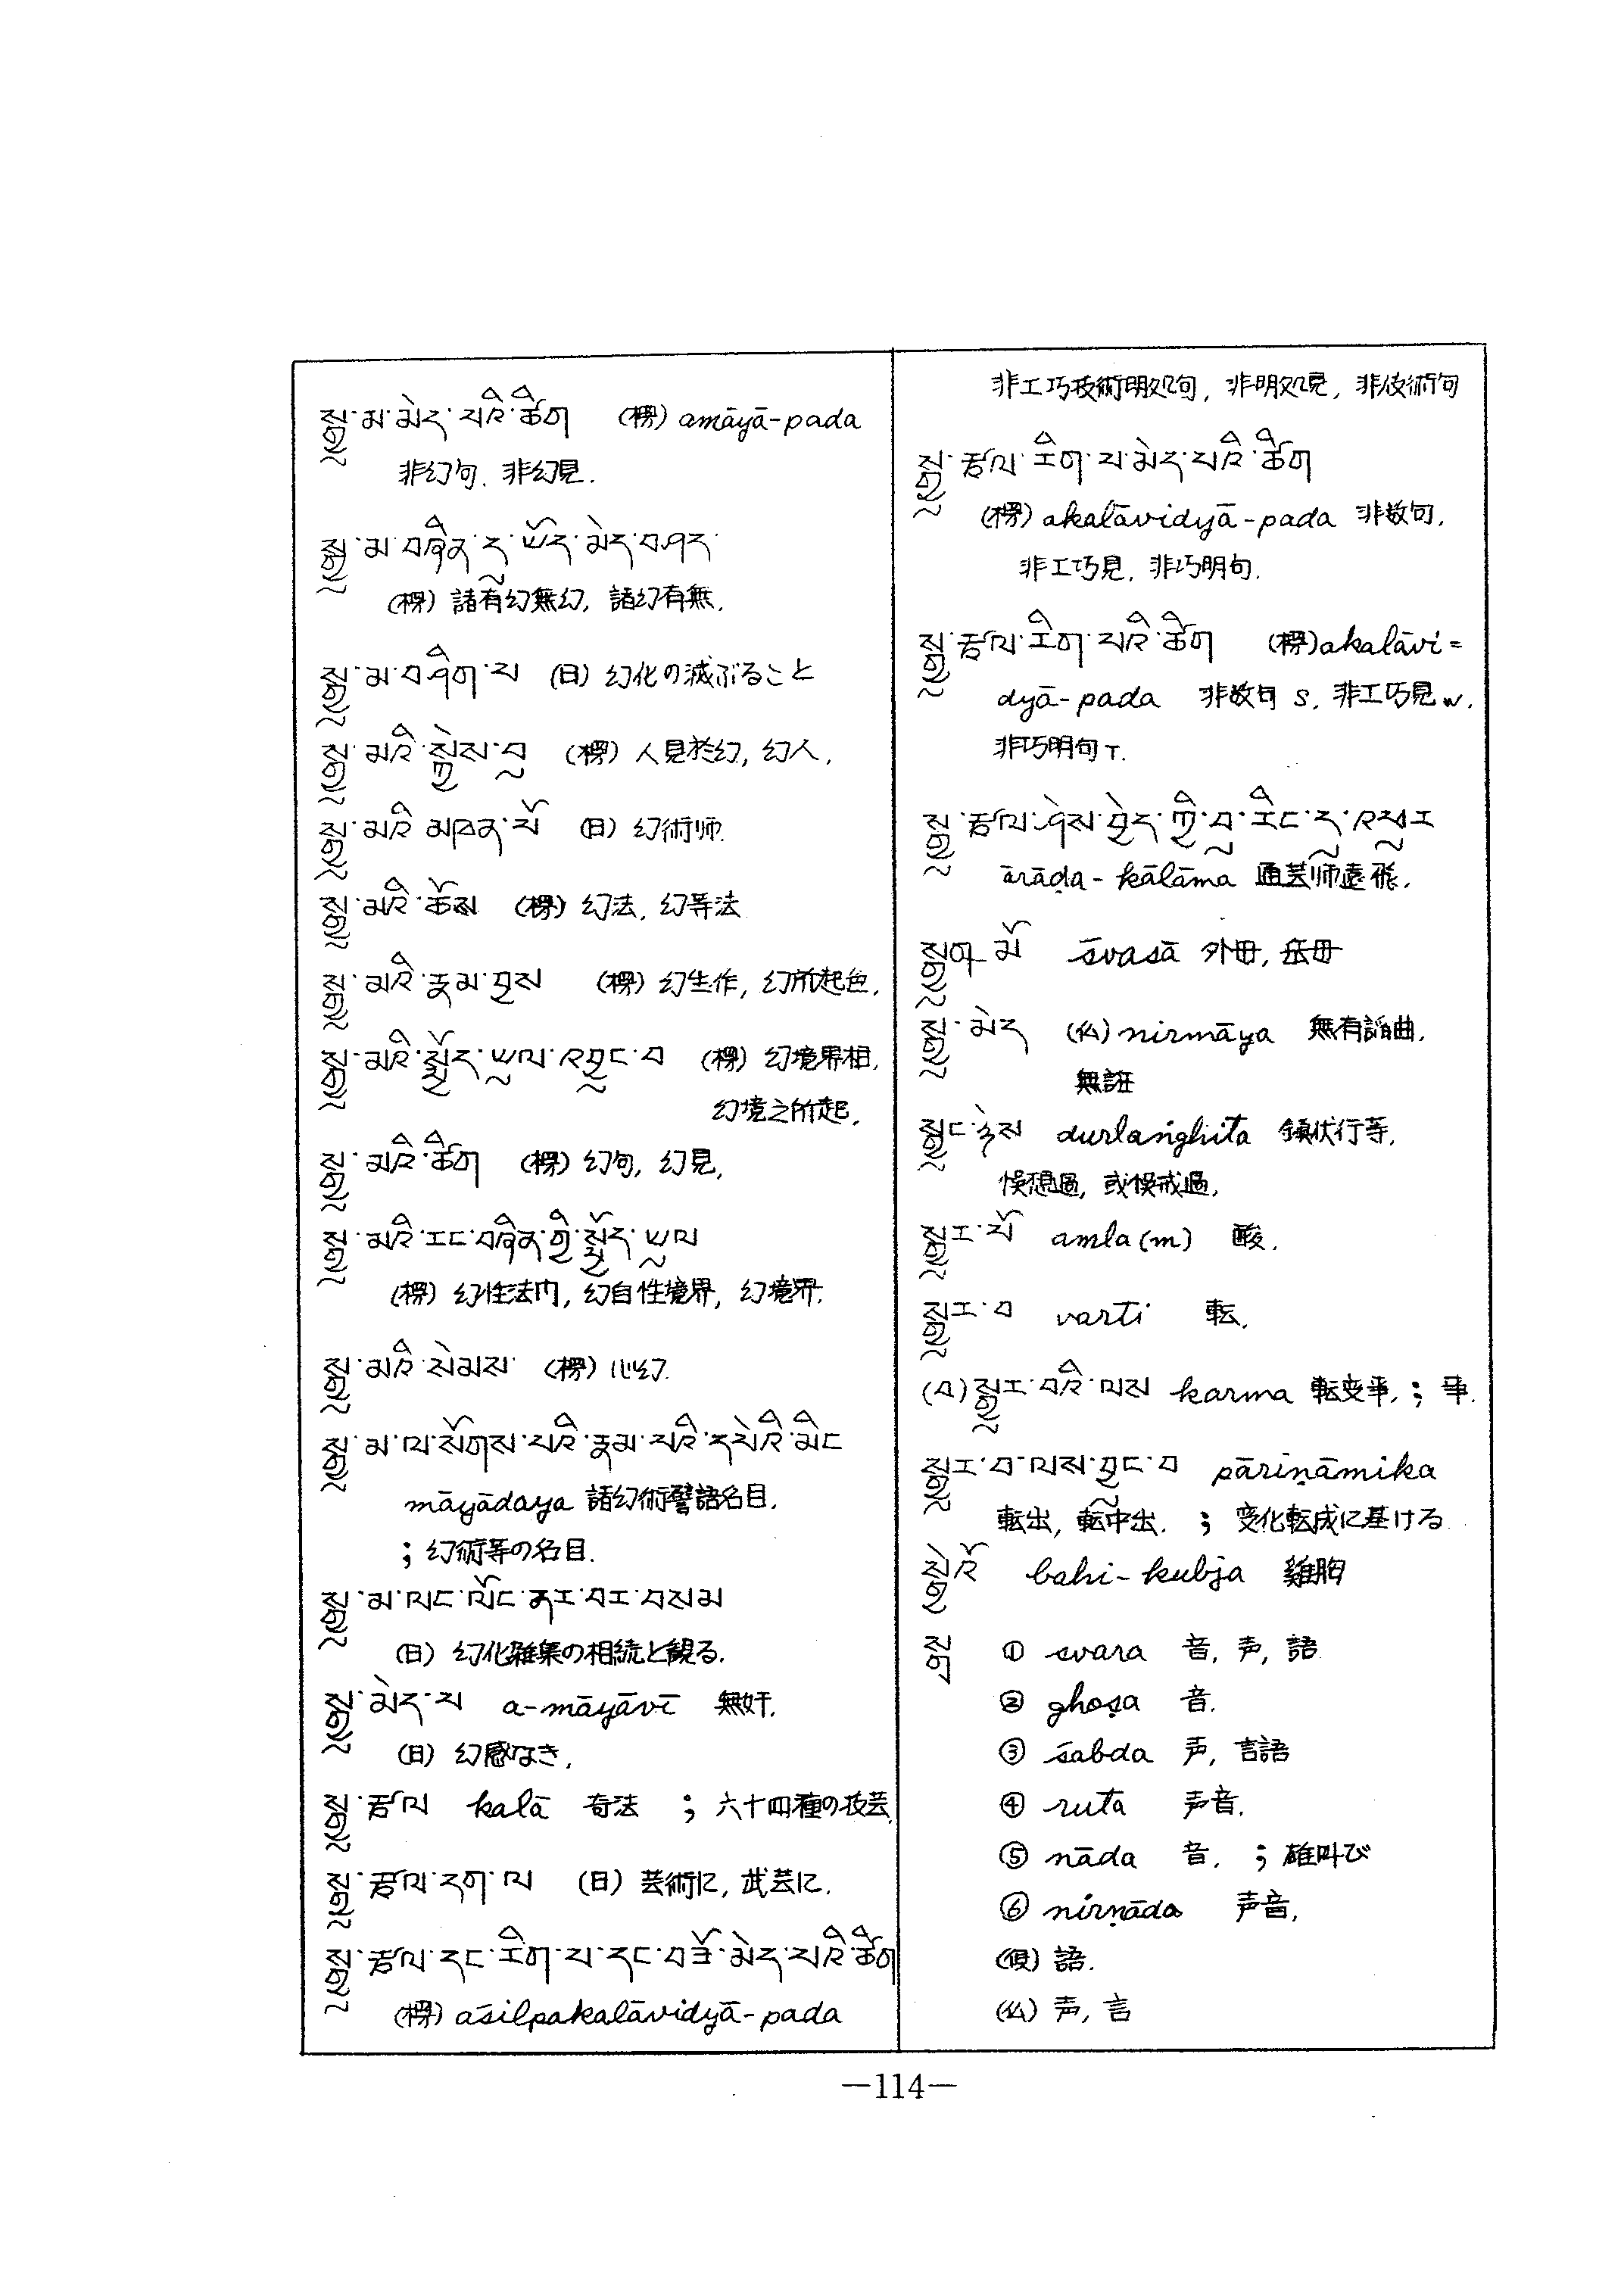 སྒྱུ་མ་མེད་པའི་ཚིག (楞) amāyā-pada
非幻句. 非幻見.
སྒྱུ་མ་བཞིན་དུ་ཡོད་མེད་བཤད་
(楞) 諸有幻無幻, 諸幻有無.
སྒྱུ་མ་བཤིག་པ (日) 幻化の滅ぶること
སྒྱུ་མའི་སྐྱེས་བུ (楞) 人見於幻, 幻人.
སྒྱུ་མའི་མཁན་པོ (日) 幻術师.
སྒྱུ་མའི་ཆོས (楞) 幻法, 幻等法
སྒྱུ་མའི་རྣམ་བྱས (楞) 幻生作, 幻所起色.
སྒྱུ་མའི་སྤྱོད་ཡུལ་འབྱུང་བ (楞) 幻境界相.
幻境之所起.
སྒྱུ་མའི་ཚིག (楞) 幻句, 幻見.
སྒྱུ་མའི་རང་བཞིན་གྱི་སྤྱོད་ཡུལ
(楞) 幻性法门, 幻自性境界, 幻境界.
སྒྱུ་མའི་སེམས་ (楞) 心幻.
སྒྱུ་མ་ལ་སོགས་པའི་རྣམ་པའི་དཔེའི་མིང
māyādaya 諸幻術譬語名目.
; 幻術等の名目.
སྒྱུ་མ་ལང་ལོང་རྟར་བར་བསམ
(日) 幻化雜集の相続と観る.
སྒྱུ་མེད་པ a-māyāvī 無奸.
(日) 幻惑なき.
སྒྱུ་རྩལ kalā 奇法 ; 六十四種の技芸.
སྒྱུ་རྩལ་དག་ལ (日) 芸術に, 武芸に.
སྒྱུ་རྩལ་དང་རིག་པ་དང་བཟོ་མེད་པའི་ཚིག
(楞) aśilpakalāvidyā-pada
非工巧技術明処句, 非明処見, 非伎術句
སྒྱུ་རྩལ་རིག་པ་མེད་པའི་ཚིག
(楞) akalāvidyā-pada 非数句.
非工巧見. 非巧明句.
སྒྱུ་རྩལ་རིག་པའི་ཚིག (楞) akalāvi=
dyā-pada 非数句 S. 非工巧見 W.
非巧明句 T.
སྒྱུ་རྩལ་ཤེས་བྱེད་ཀྱི་བུ་རིང་དུ་འཕུར
ārāḍa-kālāma 通芸师遠飛.
སྒྱུག་མོ śvasā 外母, 岳母
སྒྱུ་མེད (仏) nirmāya 無有諂曲.
無誑
སྒྱུང་ཉེས durlaṅghita 鎮伏行等.
悞想過, 或悞戒過.
སྒྱུར་པོ amla(m) 酸.
སྒྱུར་བ varti 転.
(བ)སྒྱུར་བའི་ལས karma 転变事. ; 事.
སྒྱུར་བ་ལས་བྱུང་བ pāriṇāmika
転出, 転中出. ; 変化転成に基ける.
སྒྱེའོ bahi-kubja 雞胸
སྒྲ ① svara 音, 声, 語
② ghoṣa 音.
③ śabda 声, 言語
④ ruta 声音.
⑤ nāda 音. ; 雄叫び
⑥ nirṇāda 声音.
(倶) 語.
(仏) 声, 言
—114—